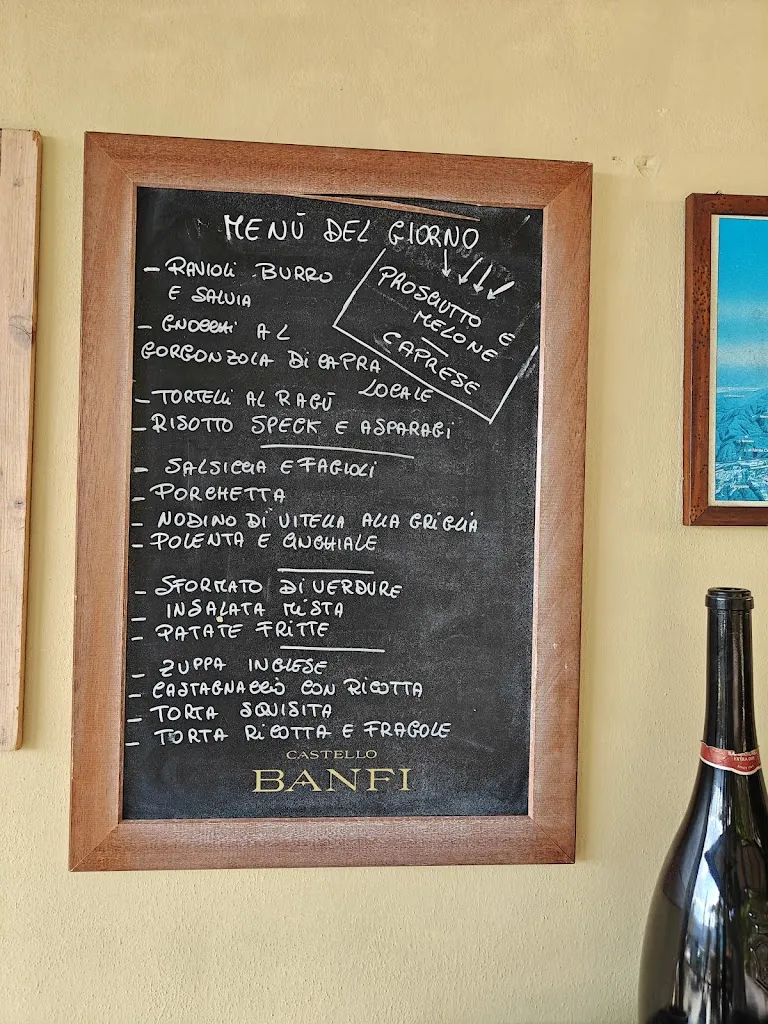 MENÙ DEL GIORNO
- RAVIOLI BURRO
E SALVIA
- GNOCCHI AL
GORGONZOLA DI CAPRA
LOCALE
- TORTELLI AL RAGÙ
- RISOTTO SPECK E ASPARAGI
PROSCIUTTO E
MELONE
-
CAPRESE
- SALSICCIA E FAGIOLI
- PORCHETTA
- NODINO DI VITELLA ALLA GRIGLIA
- POLENTA E CINGHIALE
- SFORMATO DI VERDURE
- INSALATA MISTA
- PATATE FRITTE
- ZUPPA INGLESE
- CASTAGNACCIO CON RICOTTA
- TORTA SQUISITA
- TORTA RICOTTA E FRAGOLE
CASTELLO
BANFI
EXTRA DRY